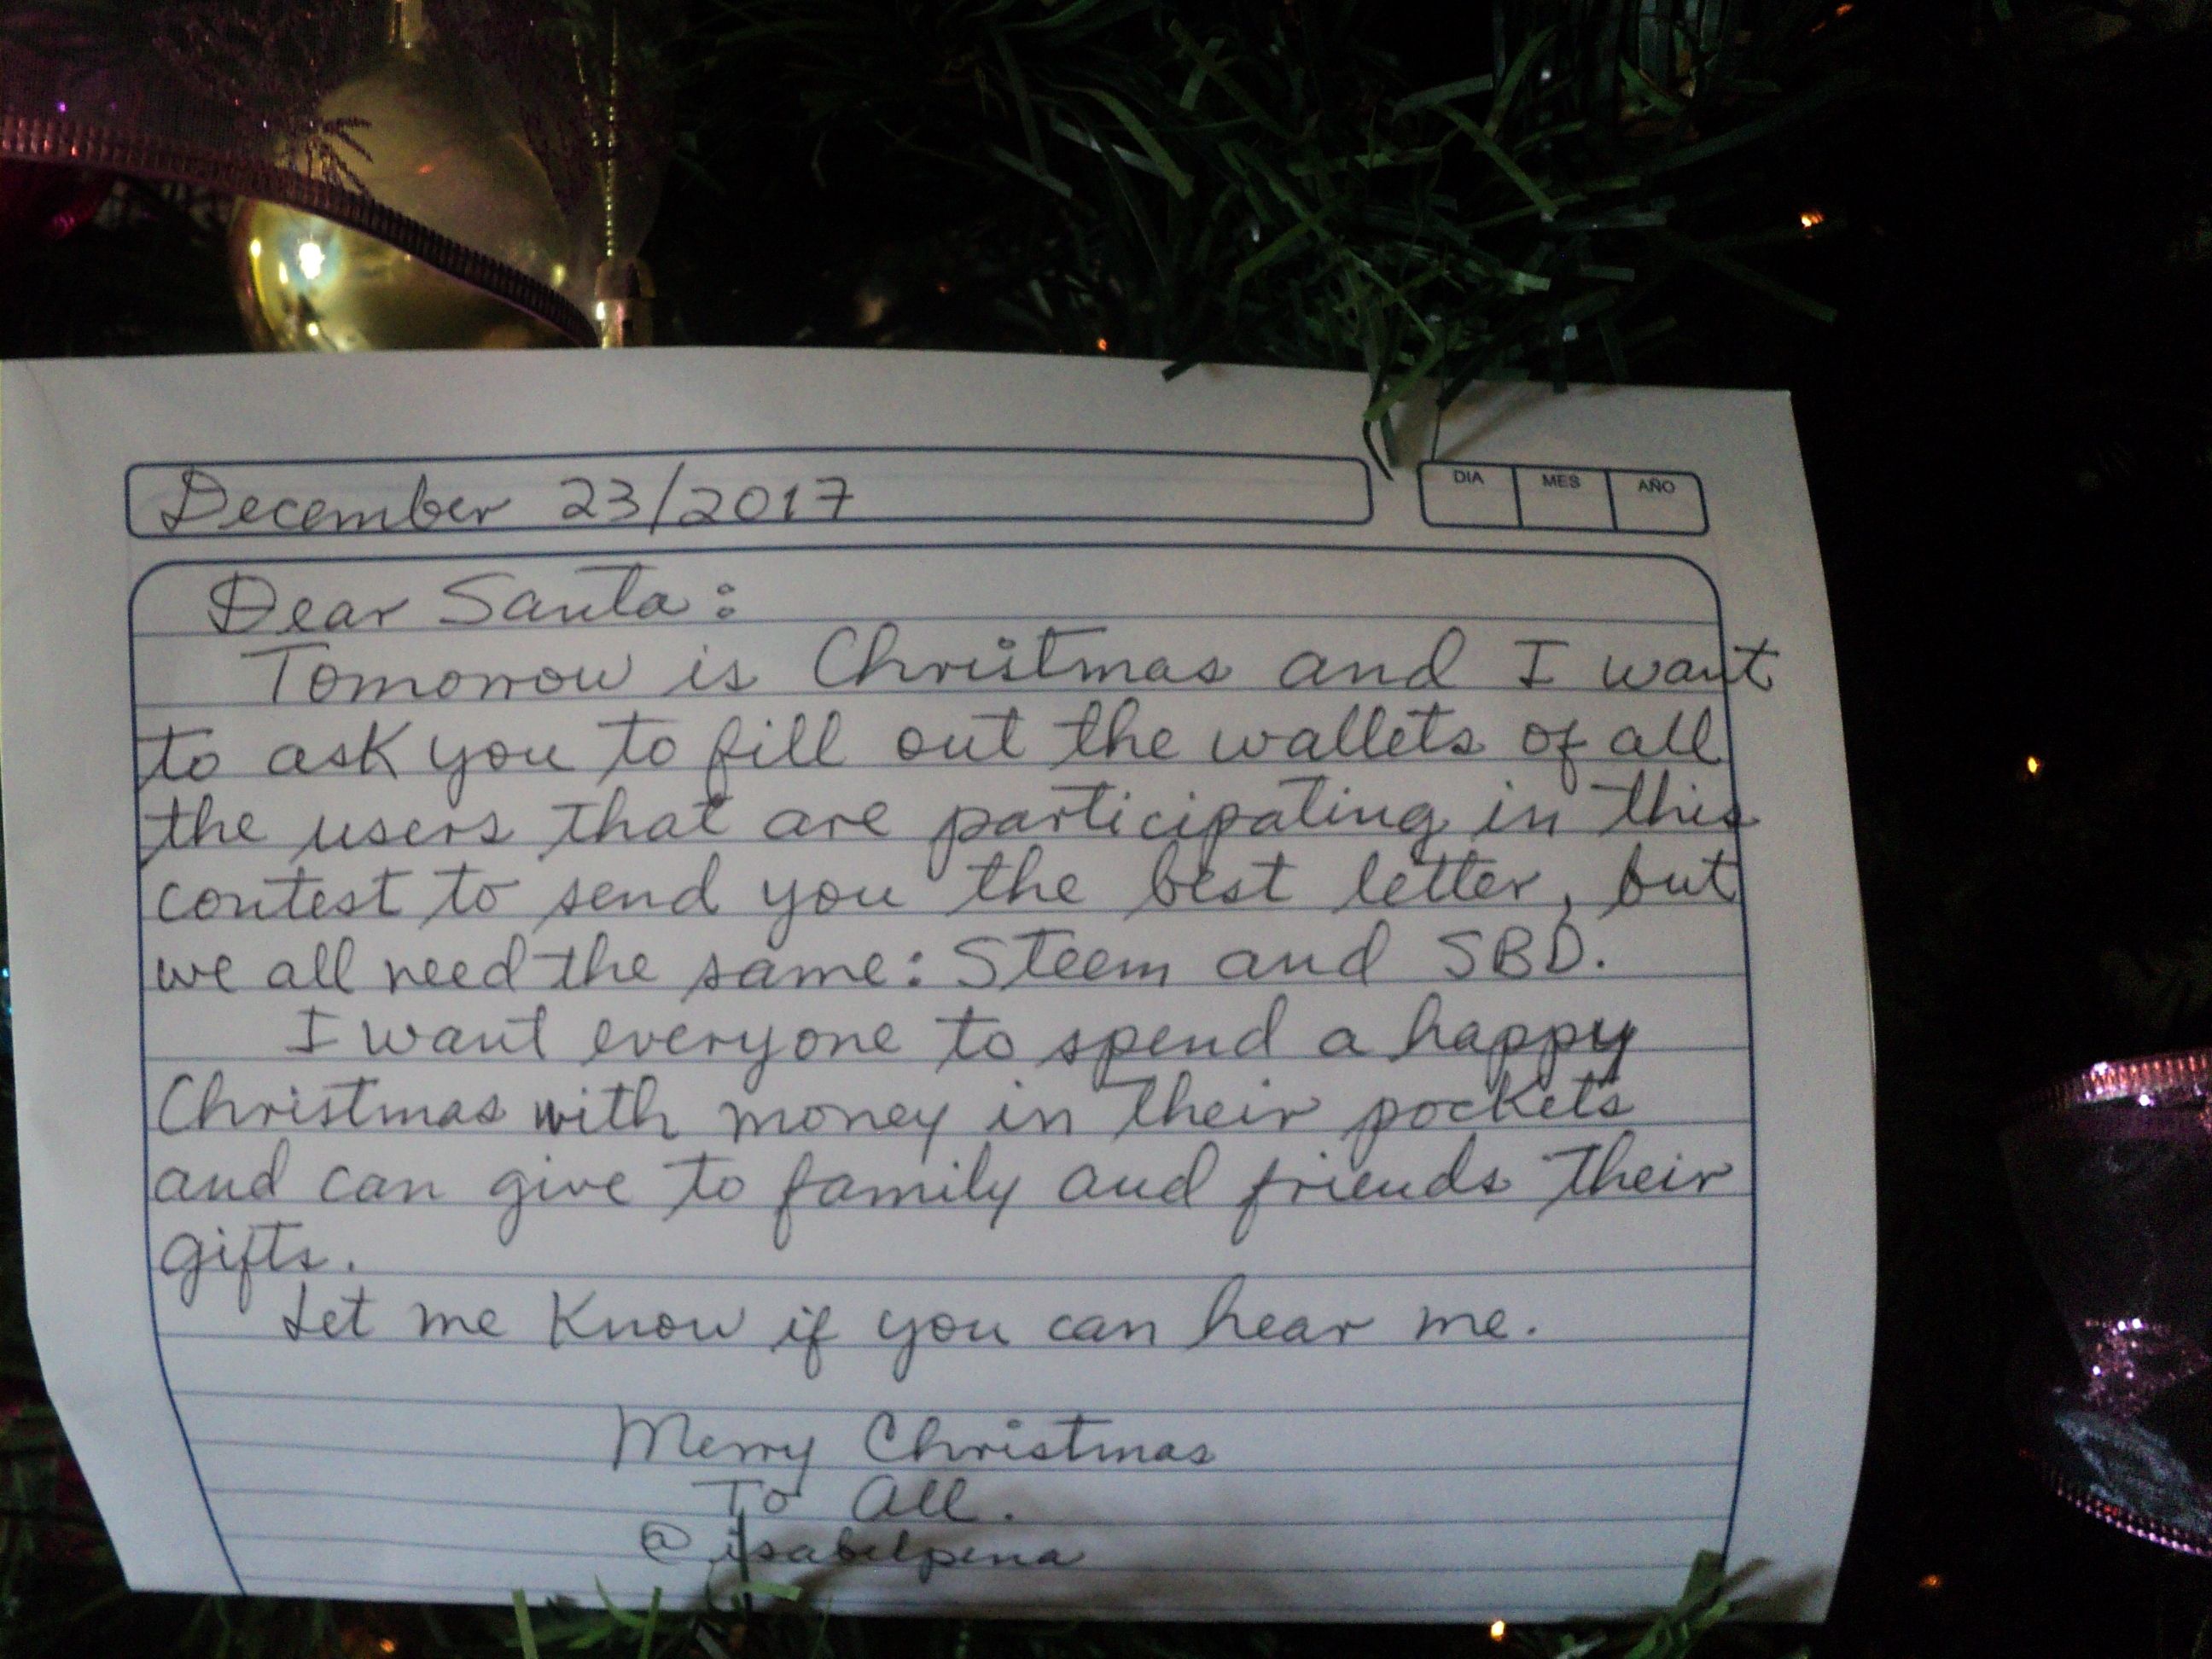 December 23/2017
DIA MES AÑO
Dear Santa:
Tomorrow is Christmas and I want
to ask you to fill out the wallets of all
the users that are participating in this
contest to send you the best letter, but
we all need the same: Steem and SBD.
I want everyone to spend a happy
Christmas with money in their pockets
and can give to family and friends their
gifts.
Let me know if you can hear me.
Merry Christmas
To All.
@isabelpena